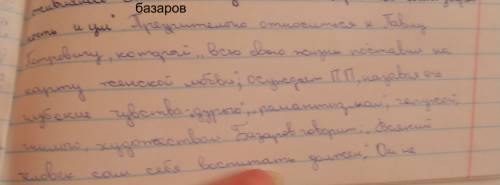 базаров
ность и ум" Презрительно относится к Павлу
Петровичу, который „всю свою жизнь поставил на
карту женской любви", осуждает ПП, называя его
глубокие чувства „дурью", „романтизмом, чепухой,
гнилью, художеством Базаров говорит: „Всякий
человек сам себя воспитать должен," Он не